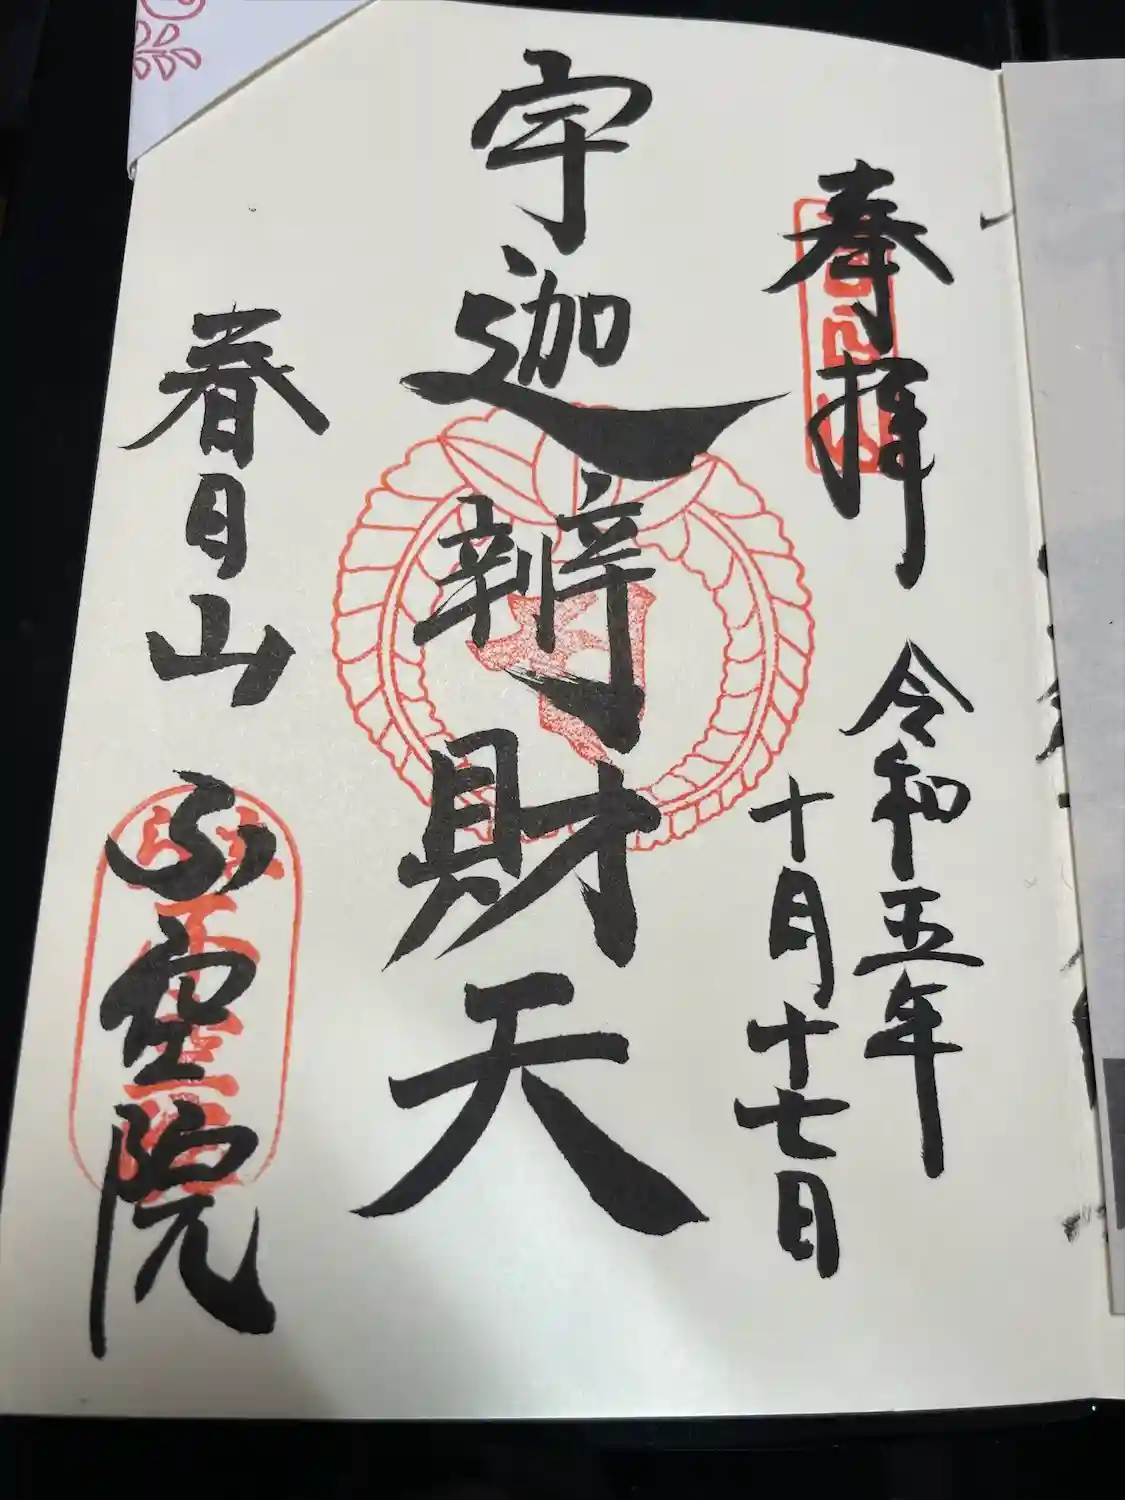 奉拝
令和五年
十月十七日
宇迦辨財天
春日山
不空院